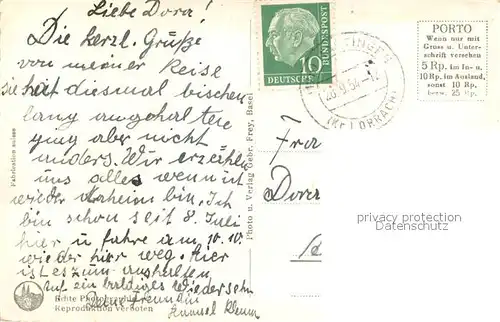 Liebe Dora!
Die herzl. Grüße
von meiner Reise
hat diesmal bischen
lang angehalten
ging aber nicht
anders. Wir erzählen
uns alles wenn ich
wieder daheim bin. Ich
bin schon seit 8. Juli
hier u fahre am 10.10.
wieder hier weg. Hier
ist es zum aushalten
Auf ein baldiges Wiedersehn
Deine Freundin
Fabrication suisse
Echte Photographie
Reproduktion verboten
Photo u. Verlag Gebr. Frey, Basel
DEUTSCHE BUNDESPOST
10
(Kr LÖRRACH)
PORTO
Wenn nur mit
Gruss u. Unter-
schrift versehen
5 Rp. im In- u.
10 Rp. im Ausland,
sonst 10 Rp.
bezw. 25 Rp.
Frau
Dora
privacy protection
Datenschutz